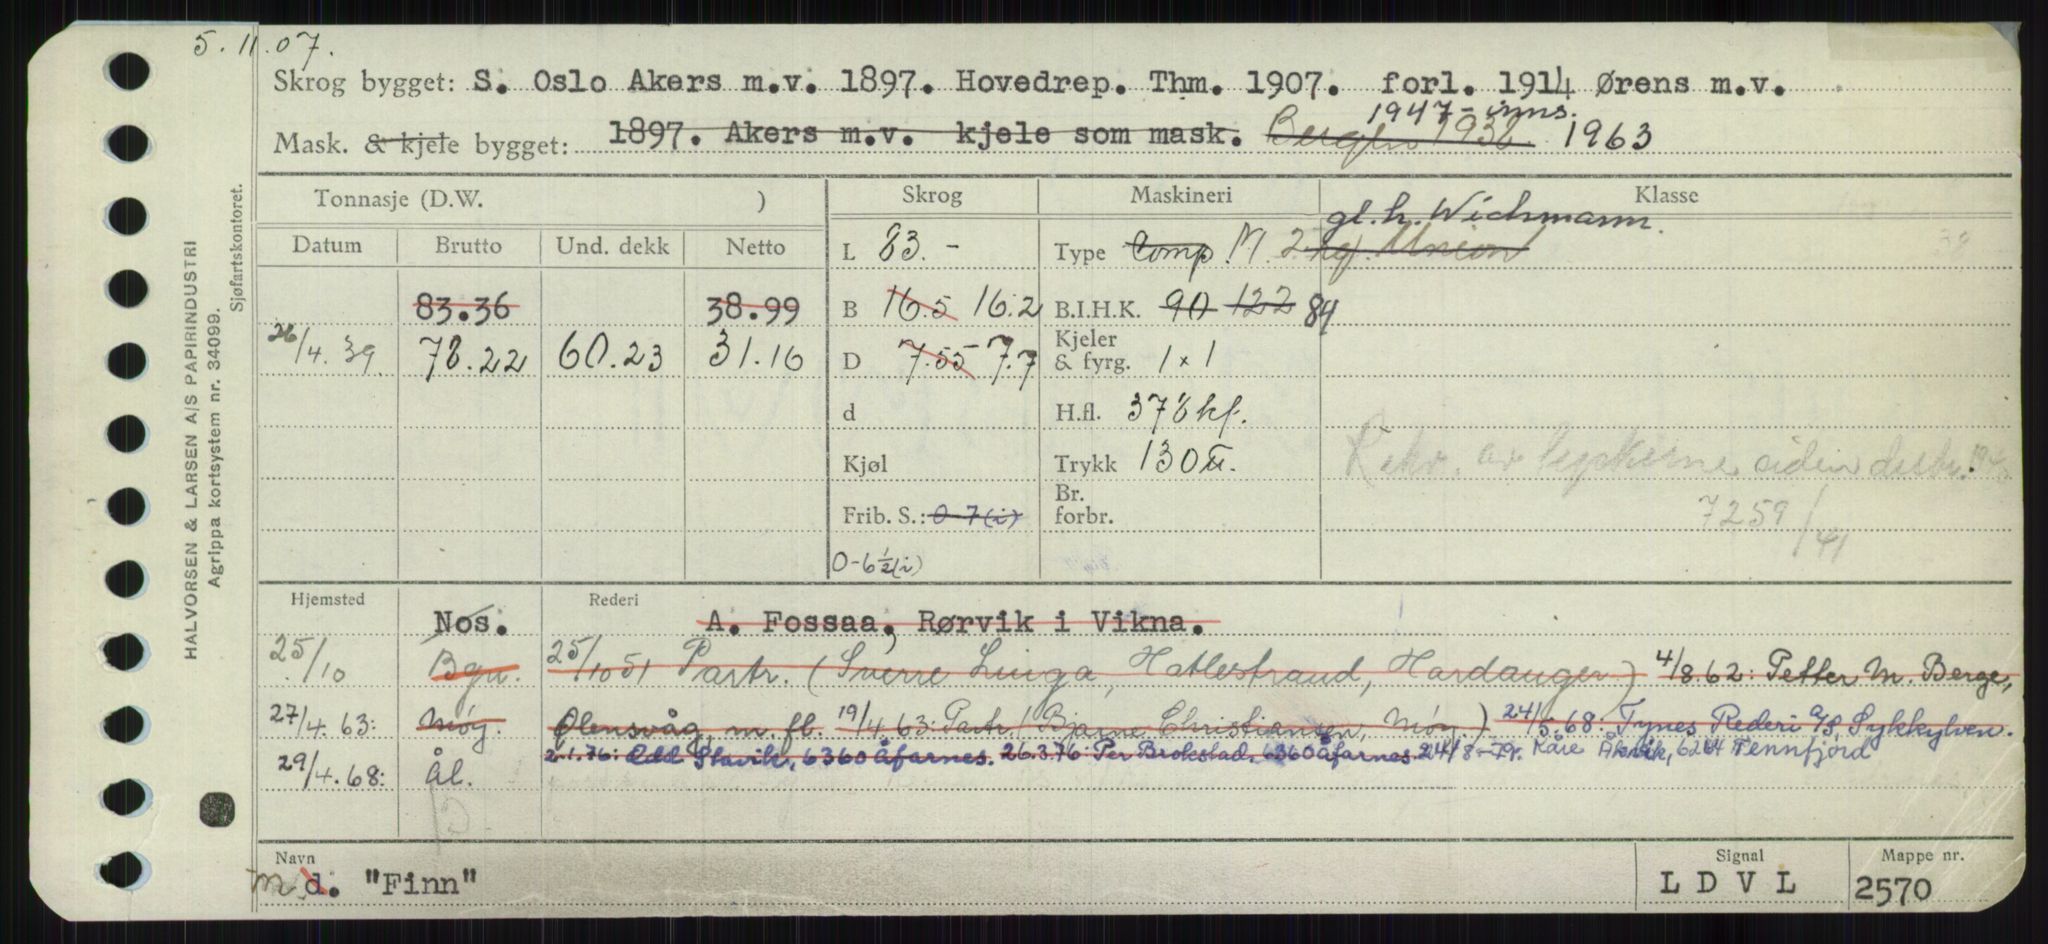 5.11.07.
Skrog bygget: S. Oslo Akers m.v. 1897. Hovedrep. Thm. 1907. forl. 1914 Ørens m.v.
1947-inns.
Mask. & kjele bygget: 1897. Akers m.v. kjele som mask. 1963
Tonnasje (D.W. ) Skrog Maskineri Klasse
gl.h. Wichmann.
Datum Brutto Und. dekk Netto L 83.- Type Comp. M. Union
83.36 38.99 B 16.5 16.2 B.I.H.K. 90 122 84
26/4.39. 78.22 60.23 31.16 D 7.55 7.7 Kjeler & fyrg. 1 x 1
d H.fl. 378 kf.
Kjøl Trykk 130
Frib. S.: 0-7(i) Br. forbr.
7259/41
0-6½(i)
Hjemsted Rederi
Nos. A. Fossaa, Rørvik i Vikna.
25/10 Bgn. 25/10 51 Partr. (Sverre Linga, Hatlestrand, Hardanger) 4/8.62: Petter M. Berge,
27/4.63: Møy. Ølensvåg, m.fl. 19/4.63: Partr. (Bjarne Christiansen, Møy.) 24/5.68: Tynes Rederi a/s, Sykkylven.
29/4.68: Ål. 2.1.76: Odd Slavik, 6360 Åfarnes. 26.3.76: Per Brokstad, 6360 Åfarnes. Kåre 6264 Tennfjord
Navn Signal Mappe nr.
m d. "Finn" L D V L 2570
HALVORSEN & LARSEN A/S PAPIRINDUSTRI
Agrippa kortsystem nr. 34099.
Sjøfartskontoret.